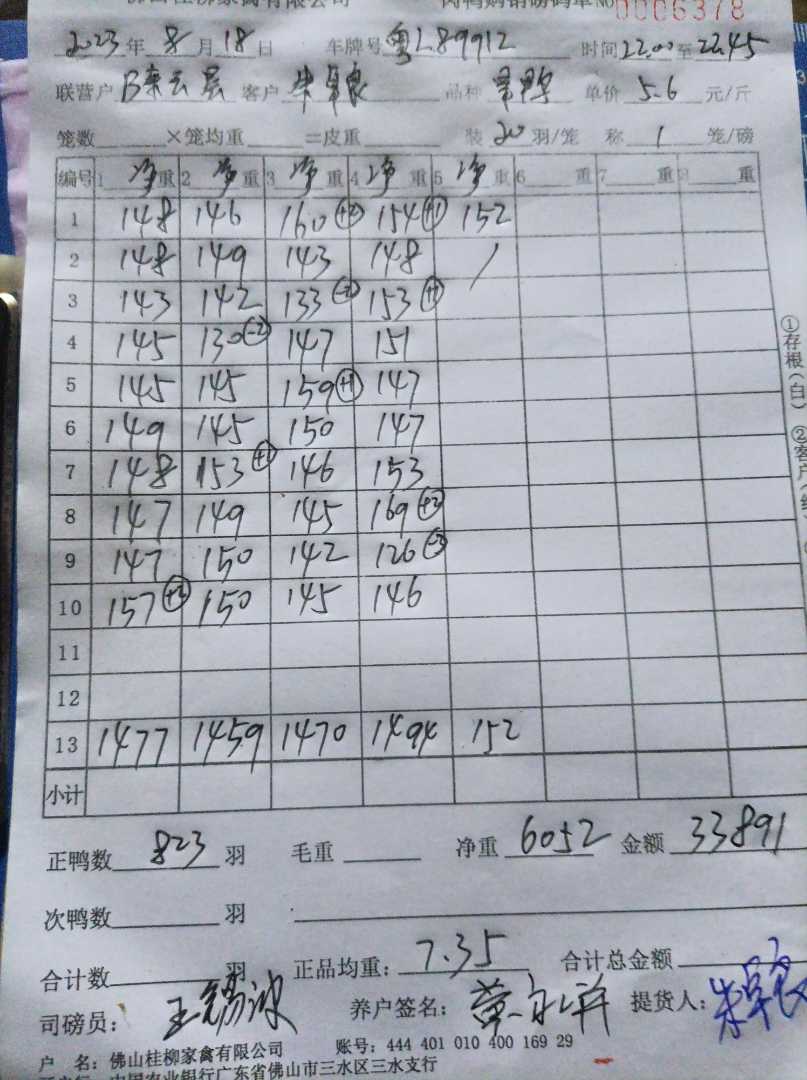 佛山桂柳家禽有限公司 肉鸭购销磅码单 No 0006378
2023年 8月 18日 车牌号 粤L89912 时间22:00至22:45
联营户 客户 朱卓良 品种 单价 5.6 元/斤
笼数 ×笼均重 =皮重 装 20 羽/笼 称 1 笼/磅
编号 1 净重 2 净重 3 净重 4 净重 5 净重 6 重 7 重 8 重
1 148 146 160(+2) 154(+1) 152
2 148 149 143 148 /
3 143 142 133(-2) 153(+1)
4 145 130(-2) 147 151
5 145 145 159(+1) 147
6 149 145 150 147
7 148 153(+1) 146 153
8 147 149 145 169(+2)
9 147 150 142 126(-3)
10 157(+2) 150 145 146
11
12
13 1477 1459 1470 1494 152
小计
正鸭数 823 羽 毛重 净重 6052 金额 33891
次鸭数 羽
合计数 羽 正品均重: 7.35 合计总金额
司磅员: 王锡波 养户签名: 提货人: 朱卓良
户 名: 佛山桂柳家禽有限公司 账号: 444 401 010 400 169 29
中国农业银行广东省佛山市三水区三水支行
①存根(白) ②客户(红)